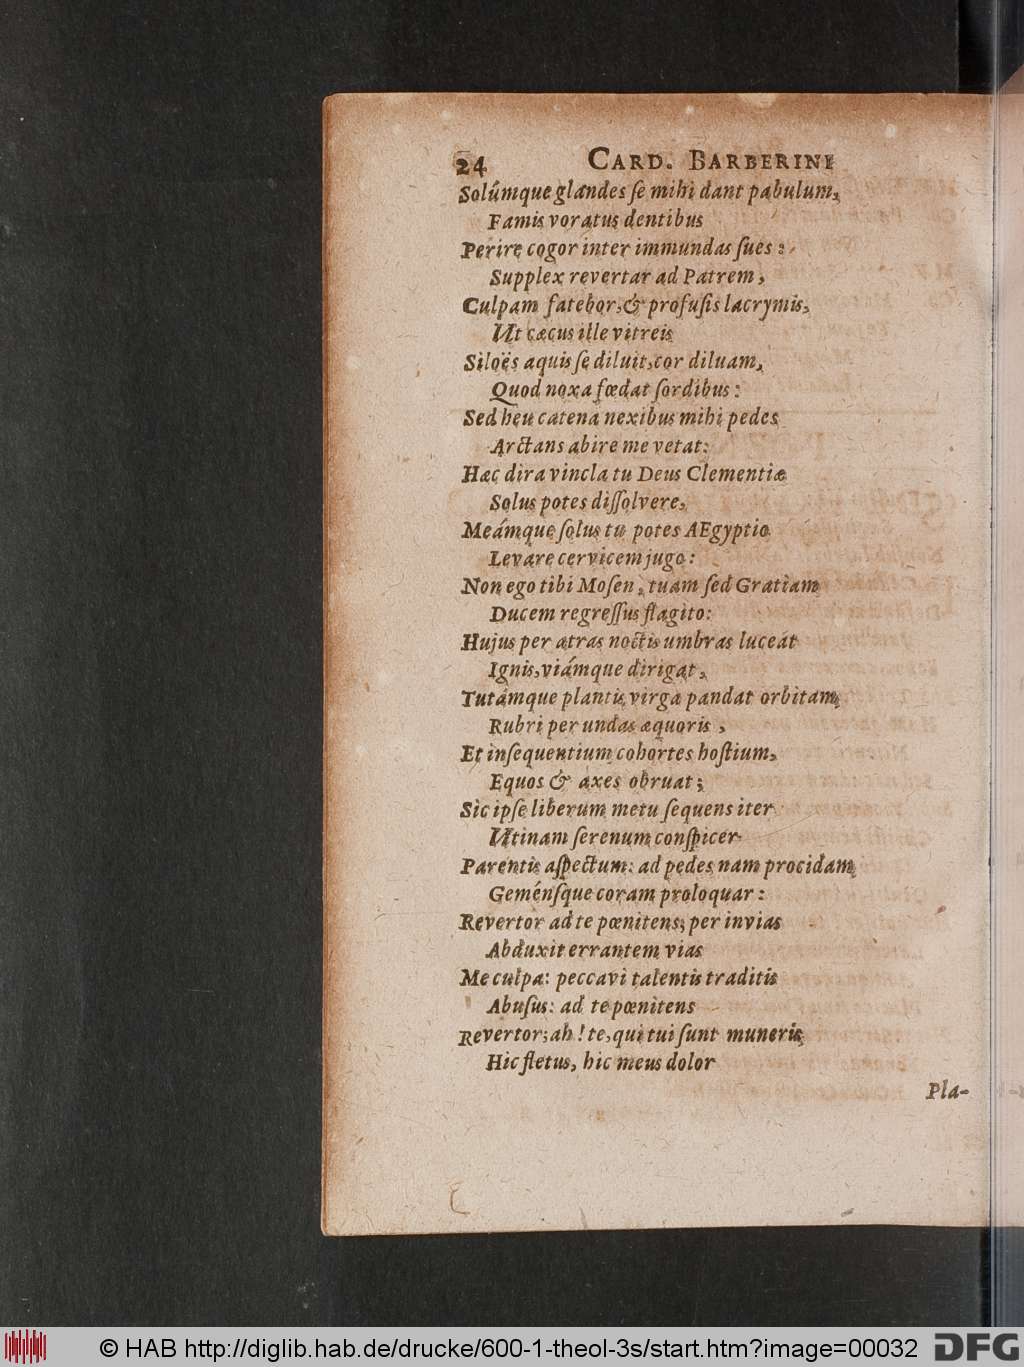 24 CARD. BARBERINI
Solúmque glandes ſe mihi dant pabulum,
Famis voratus dentibus
Perire cogor inter immundas ſues:
Supplex revertar ad Patrem,
Culpam fatebor, & profuſis lacrymis,
Ut cæcus ille vitreis
Siloës aquis ſe diluit, cor diluam,
Quod noxa fœdat ſordibus:
Sed heu catenà nexibus mihi pedes
Arctans abire me vetat:
Hæc dira vincla tu Deus Clementiæ
Solus potes diſſolvere,
Meámque ſolus tu potes AEgyptio
Levare cervicem jugo:
Non ego tibi Moſen, tuam ſed Gratiam
Ducem regreſſus flagito:
Hujus per atras noctis umbras luceat
Ignis, viámque dirigat,
Tutámque plantis virga pandat orbitam
Rubri per undas æquoris,
Et inſequentium cohortes hoſtium,
Equos & axes obruat;
Sic ipſe liberum metu ſequens iter
Utinam ſerenum conſpicer
Parentis aſpectum: ad pedes nam procidam
Geménſque coram proloquar:
Revertor ad te pœnitens; per invias
Abduxit errantem vias
Me culpa: peccavi talentis traditis
Abuſus: ad te pœnitens
Revertor; ah! te, qui tui ſunt muneris
Hic fletus, hic meus dolor
Pla-
© HAB http://diglib.hab.de/drucke/600-1-theol-3s/start.htm?image=00032
DFG